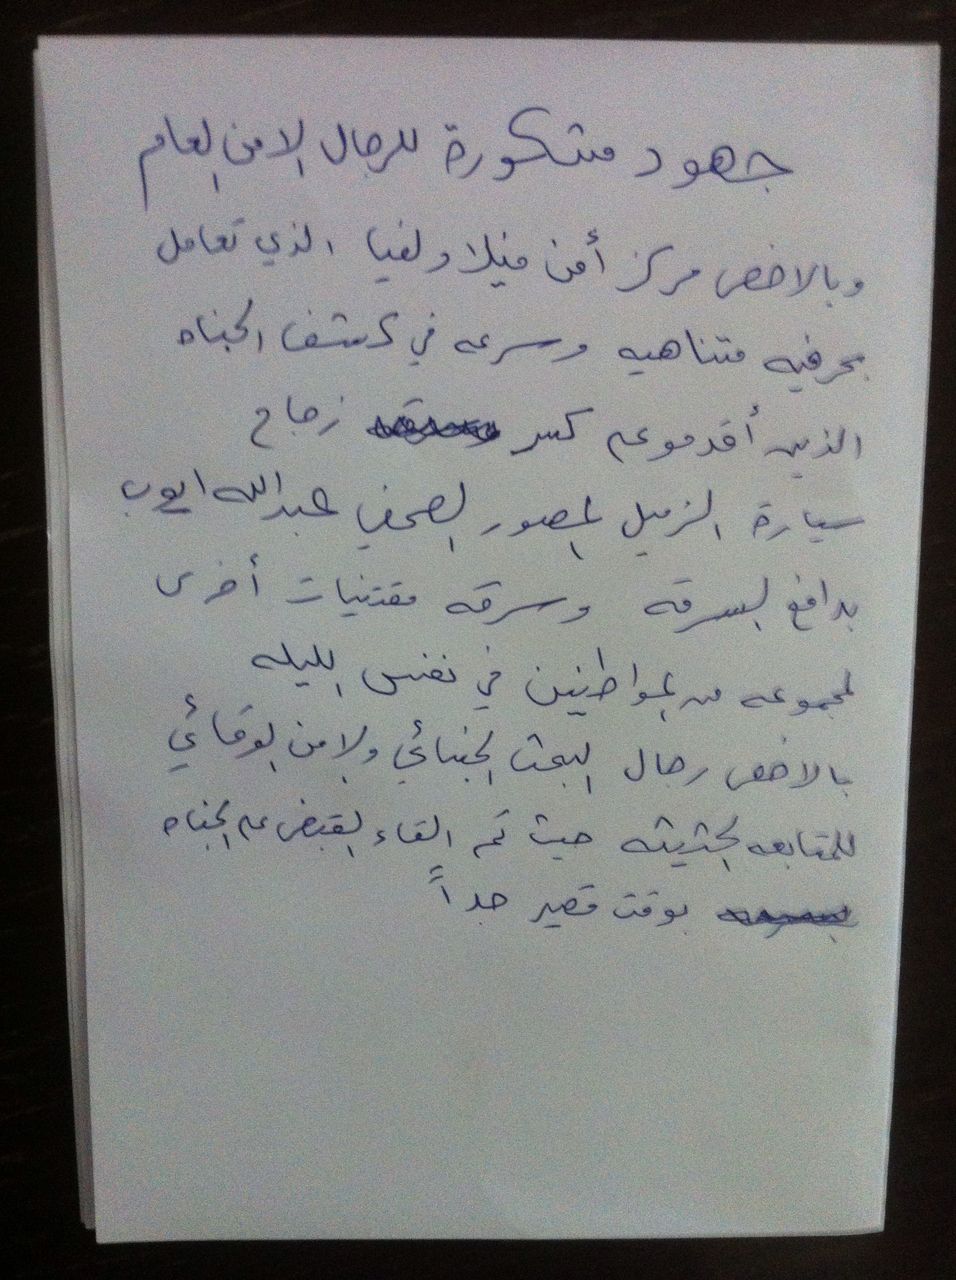 جهود مشكورة للرجال الامن العام
وبالاخص مركز أمن فيلادلفيا الذي تعامل
بحرفيه متناهيه وسرعه في كشف الجناه
الذين أقدموعلى كسر زجاج
سيارة الزميل المصور الصحفي عبدالله ايوب
بدافع السرقه وسرقه مقتنيات أخرى
لمجموعه من المواطنين في نفس الليله
بالاخص رجال البحث الجنائي ولامن الوقائي
للمتابعه الحثيثه حيث تم القاء القبض على الجناه
بوقت قصير جداً